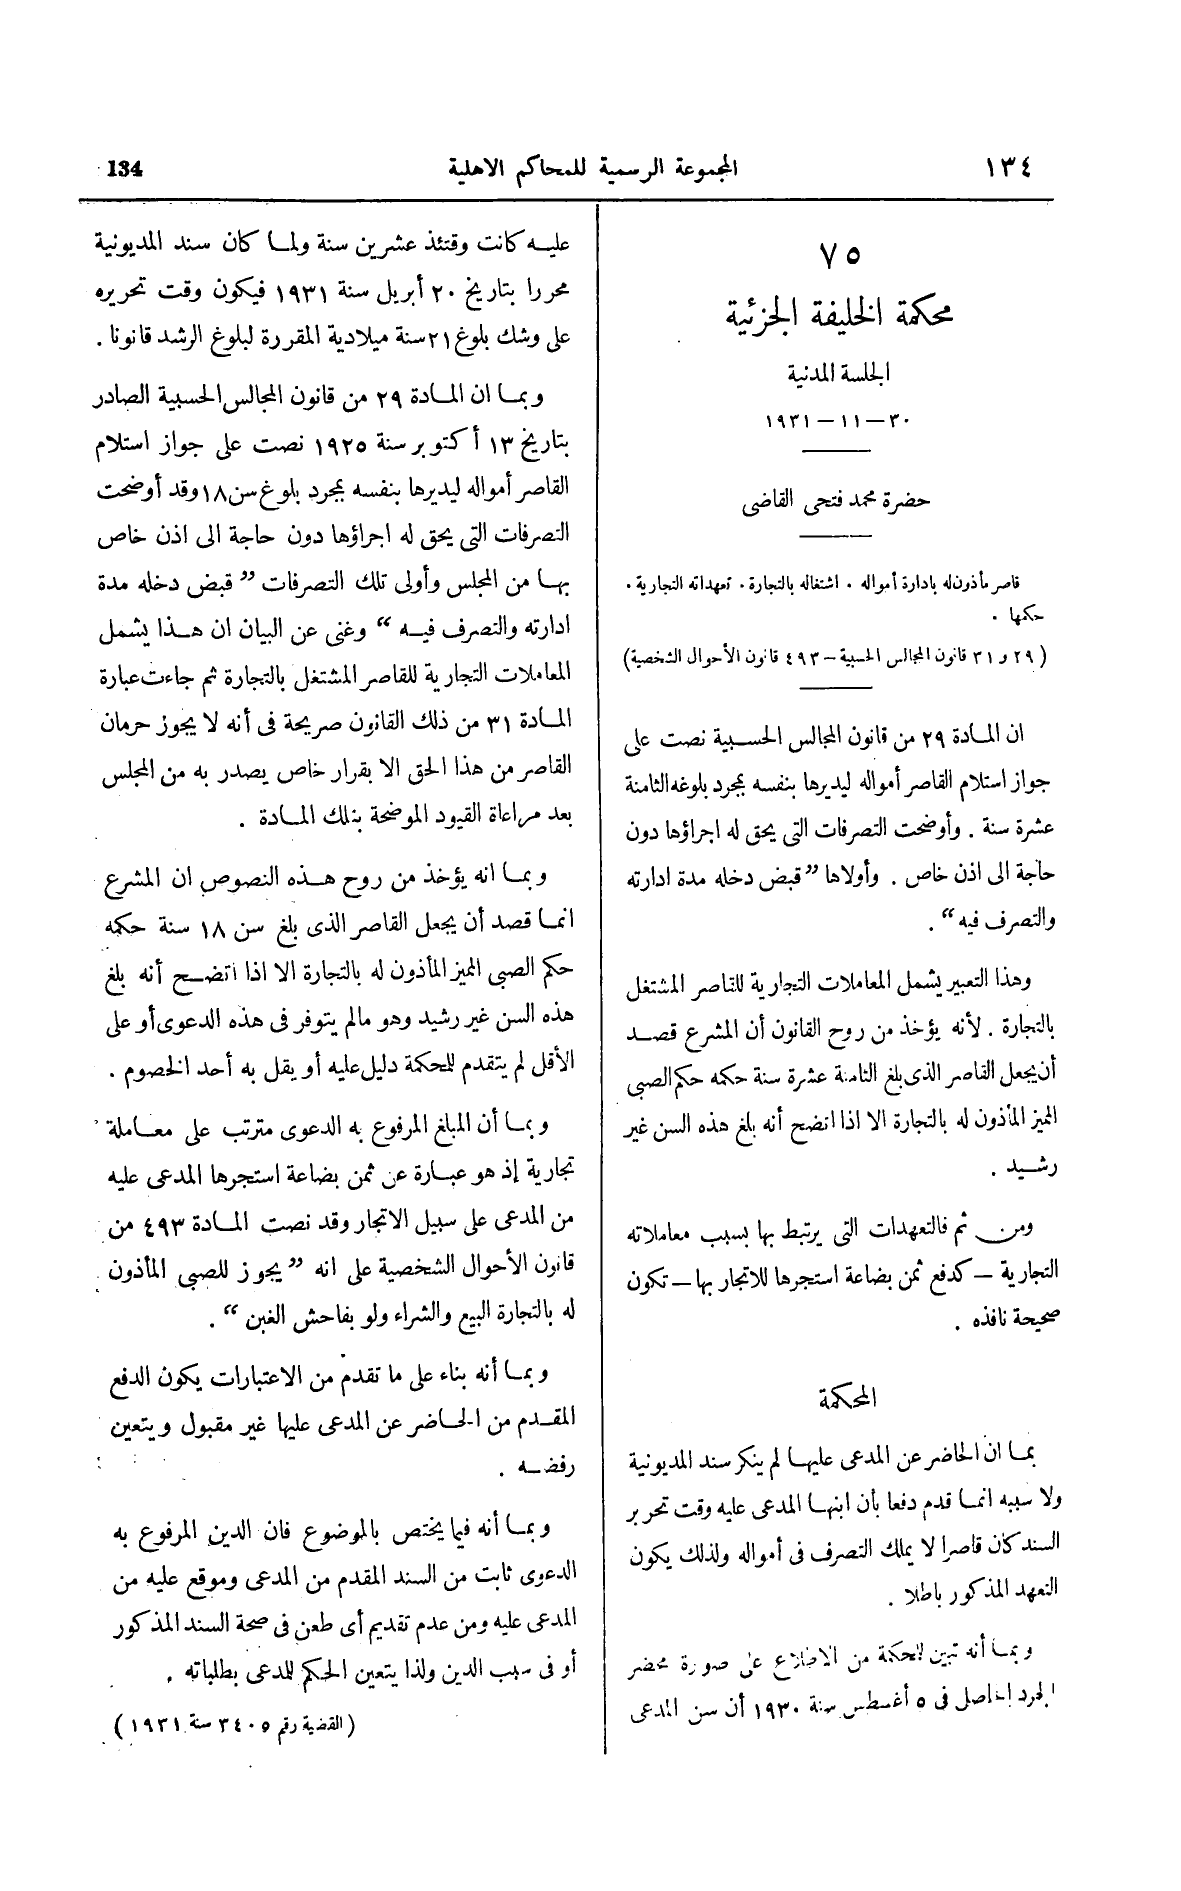 ١٣٤
المجموعة الرسمية للمحاكم الاهلية
134
٧٥
محكمة الخليفة الجزئية
الجلسة المدنية
٣٠ – ١١ – ١٩٣١
حضرة محمد فتحى القاضى
قاصر مأذون له بادارة أمواله . اشتغاله بالتجارة . تعهداته التجارية .
حكمها .
( ٢٩ و ٣١ قانون المجالس الحسبية – ٤٩٣ قانون الأحوال الشخصية )
ان المادة ٢٩ من قانون المجالس الحسبية نصت على
جواز استلام القاصر أمواله ليديرها بنفسه بمجرد بلوغه الثامنة
عشرة سنة . وأوضحت التصرفات التى يحق له اجراؤها دون
حاجة الى اذن خاص . وأولاها ” قبض دخله مدة ادارته
والتصرف فيه “ .
وهذا التعبير يشمل المعاملات التجارية للقاصر المشتغل
بالتجارة . لأنه يؤخذ من روح القانون أن المشرع قصد
أن يجعل القاصر الذى بلغ الثامنة عشرة سنة حكمه حكم الصبى
المميز المأذون له بالتجارة الا اذا اتضح أنه بلغ هذه السن غير
رشيد .
ومن ثم فالتعهدات التى يرتبط بها بسبب معاملاته
التجارية – كدفع ثمن بضاعة استجرها للاتجار بها – تكون
صحيحة نافذه .
المحكمة
بما ان الحاضر عن المدعى عليها لم ينكر سند المديونية
ولا سببه انما قدم دفعا بأن ابنها المدعى عليه وقت تحرير
السند كان قاصرا لا يملك التصرف فى أمواله ولذلك يكون
التعهد المذكور باطلا .
وبما أنه تبين للمحكمة من الاطلاع على صورة محضر
الجرد الحاصل فى ٥ أغسطس سنة ١٩٣٠ أن سن المدعى
عليه كانت وقتئذ عشرين سنة ولما كان سند المديونية
محررا بتاريخ ٢٠ أبريل سنة ١٩٣١ فيكون وقت تحريره
على وشك بلوغ ٢١ سنة ميلادية المقررة لبلوغ الرشد قانونا .
وبما ان المادة ٢٩ من قانون المجالس الحسبية الصادر
بتاريخ ١٣ أكتوبر سنة ١٩٢٥ نصت على جواز استلام
القاصر أمواله ليديرها بنفسه بمجرد بلوغ سن ١٨ وقد أوضحت
التصرفات التى يحق له اجراؤها دون حاجة الى اذن خاص
بها من المجلس وأولى تلك التصرفات ” قبض دخله مدة
ادارته والتصرف فيه “ وغنى عن البيان ان هذا يشمل
المعاملات التجارية للقاصر المشتغل بالتجارة ثم جاءت عبارة
المادة ٣١ من ذلك القانون صريحة فى أنه لا يجوز حرمان
القاصر من هذا الحق الا بقرار خاص يصدر به من المجلس
بعد مراعاة القيود الموضحة بتلك المادة .
وبما انه يؤخذ من روح هذه النصوص ان المشرع
انما قصد أن يجعل القاصر الذى بلغ سن ١٨ سنة حكمه
حكم الصبى المميز المأذون له بالتجارة الا اذا اتضح أنه بلغ
هذه السن غير رشيد وهو مالم يتوفر فى هذه الدعوى أو على
الأقل لم يتقدم للمحكمة دليل عليه أو يقل به أحد الخصوم .
وبما أن المبلغ المرفوع به الدعوى مترتب على معاملة
تجارية إذ هو عبارة عن ثمن بضاعة استجرها المدعى عليه
من المدعى على سبيل الاتجار وقد نصت المادة ٤٩٣ من
قانون الأحوال الشخصية على انه ” يجوز للصبى المأذون
له بالتجارة البيع والشراء ولو بفاحش الغبن “ .
وبما أنه بناء على ما تقدم من الاعتبارات يكون الدفع
المقدم من الحاضر عن المدعى عليها غير مقبول ويتعين
رفضه .
وبما أنه فيما يختص بالموضوع فان الدين المرفوع به
الدعوى ثابت من السند المقدم من المدعى وموقع عليه من
المدعى عليه ومن عدم تقديم أى طعن فى صحة السند المذكور
أو فى سبب الدين ولذا يتعين الحكم للمدعى بطلباته .
( القضية رقم ٣٤٠٥ سنة ١٩٣١ )